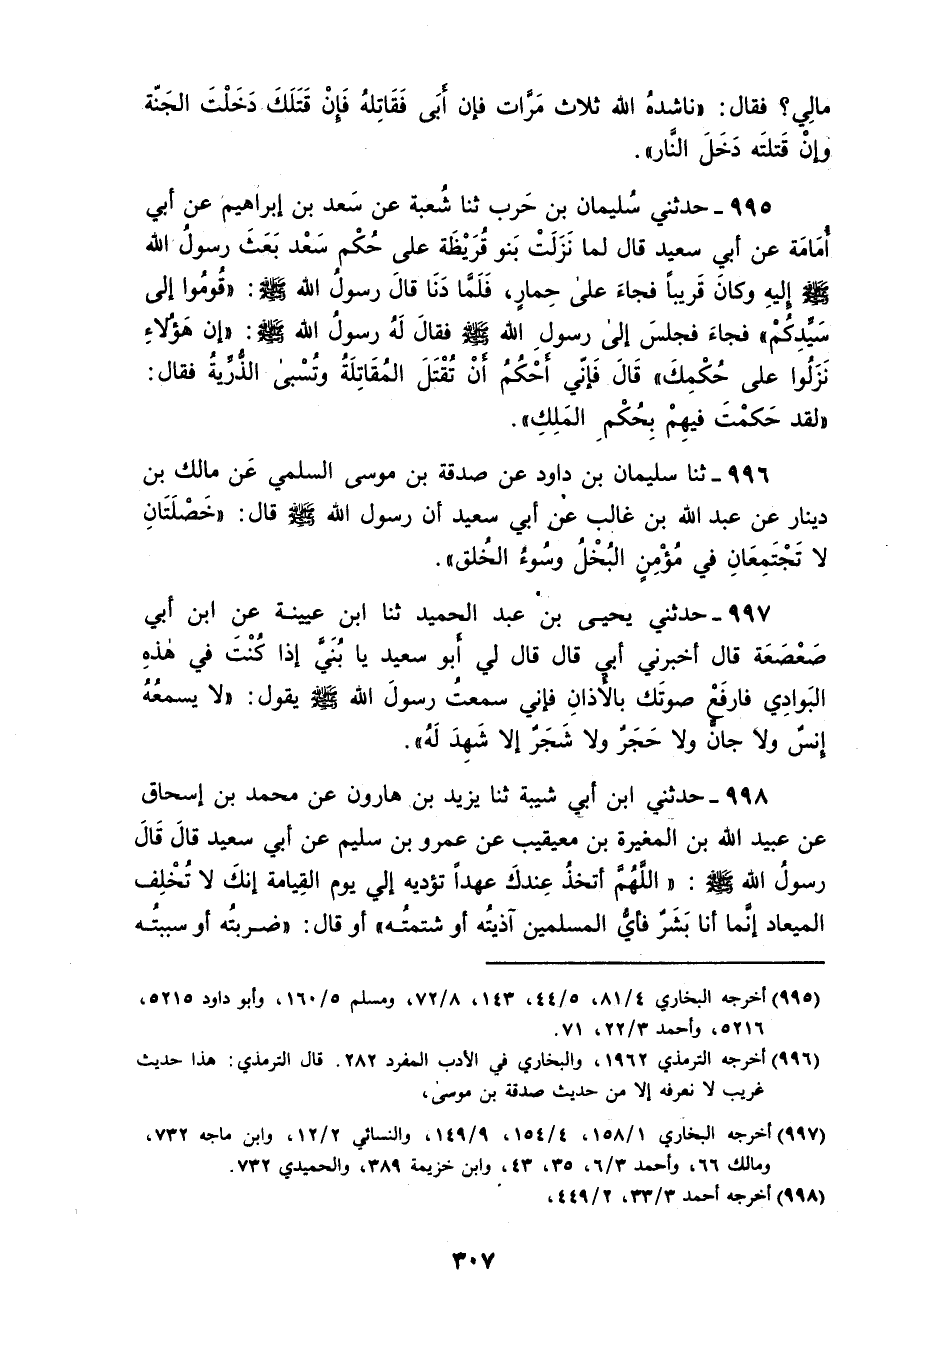 مالِي؟ فقال: «ناشدهُ الله ثلاث مَرَّات فإن أَبَى فَقَاتِلهُ فَإِنْ قَتَلَكَ دَخَلْتَ الجَنّة
وإنْ قَتلتَه دَخَلَ النَّار».
٩٩٥ - حدثني سُليمان بن حَرب ثنا شُعبة عن سَعد بن إبراهيم عن أبي
أُمَامَة عن أبي سعيد قال لما نَزَلَتْ بَنو قُرَيْظَة على حُكْم سَعْد بَعَثَ رسولُ الله
ﷺ إليهِ وكانَ قَريباً فجاءَ على حِمارٍ، فَلَمَّا دَنَا قالَ رسولُ الله ﷺ: «قُومُوا إلى
سَيِّدِكُمْ» فجاءَ فجلسَ إلى رسولِ الله ﷺ فقالَ لَهُ رسولُ الله ﷺ: «إن هَؤُلاءِ
نَزَلُوا على حُكْمِكَ» قَالَ فَإنّي أَحْكُمُ أَنْ تُقْتَلَ المُقَاتِلَةُ وتُسْبىٰ الذُّرِّيةُ فقال:
«لقد حَكمْتَ فيهِمْ بِحُكْمِ المَلِكِ».
٩٩٦ - ثنا سليمان بن داود عن صدقة بن موسى السلمي عَن مالك بن
دينار عن عبد الله بن غالب عن أبي سعيد أن رسول الله ﷺ قال: «خَصْلَتَانِ
لا تَجْتَمِعَانِ في مُؤْمِنٍ البُخْلُ وسُوءُ الخُلق».
٩٩٧ - حدثني يحيى بن عبد الحميد ثنا ابن عيينة عن ابن أبي
صَعْصَعَة قال أخبرني أبي قال قال لي أبو سعيد يا بُنَيَّ إذا كُنْتَ في هٰذهِ
البَوادِي فارفَعْ صوتَك بالأَذانِ فإني سمعتُ رسولَ الله ﷺ يقول: «لا يسمعُهُ
إنسٌ ولا جانٌّ ولا حَجَرٌ ولا شَجَرٌ إلا شَهِدَ لَهُ».
٩٩٨ - حدثني ابن أبي شيبة ثنا يزيد بن هارون عن محمد بن إسحاق
عن عبيد الله بن المغيرة بن معيقيب عن عمرو بن سليم عن أبي سعيد قالَ قَالَ
رسولُ الله ﷺ : « اللَّهُمَّ أتخذُ عِندكَ عهداً تؤديه إلي يوم القِيامة إنكَ لا تُخْلِف
الميعاد إنَّما أنا بَشَرٌ فأيُّ المسلمين آذيتُه أو شتمتُه» أو قال: «ضربتُه أو سببتُه
(٩٩٥) أخرجه البخاري ٨١/٤، ٤٤/٥، ١٤٣، ٧٢/٨، ومسلم ١٦٠/٥، وأبو داود ٥٢١٥،
٥٢١٦، وأحمد ٢٢/٣، ٧١.
(٩٩٦) أخرجه الترمذي ١٩٦٢، والبخاري في الأدب المفرد ٢٨٢. قال الترمذي: هذا حديث
غريب لا نعرفه إلا من حديث صدقة بن موسىٰ،
(٩٩٧) أخرجه البخاري ١٥٨/١، ١٥٤/٤، ١٤٩/٩، والنسائي ١٢/٢، وابن ماجه ٧٣٢،
ومالك ٦٦، وأحمد ٦/٣، ٣٥، ٤٣، وابن خزيمة ٣٨٩، والحميدي ٧٣٢.
(٩٩٨) أخرجه أحمد ٣٣/٣، ٤٤٩/٢،
٣٠٧